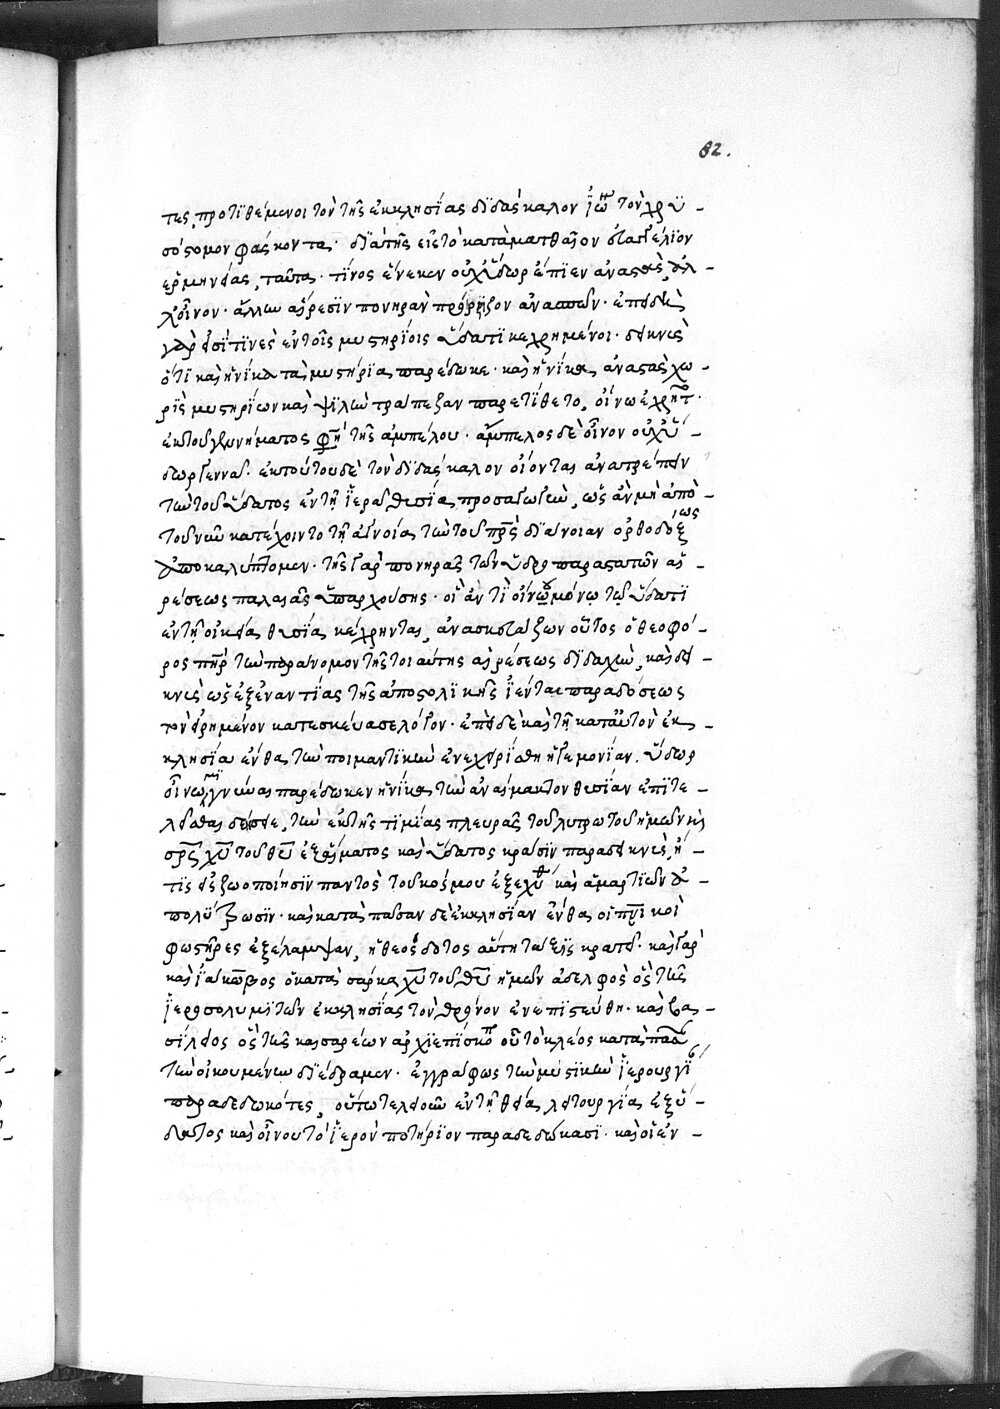 82.
τες, προτιθέμενοι τὸν τῆς ἐκκλησίας διδάσκαλον ἰω τὸν χρυ-
σόστομον φάσκοντα· διὰ τῆς εἰς τὸ κατὰ ματθαῖον εὐαγγέλιον
ἑρμηνείας, ταῦτα· τίνος ἕνεκεν οὐχ ὕδωρ ἔπιεν ἀναστὰς, ἀλ-
λ' οἶνον· ἄλλην αἵρεσιν πονηρὰν πρόρριζον ἀνασπῶν· ἐπειδὴ
γάρ εἰσί τινὲς ἐν τοῖς μυστηρίοις ὕδατι κεχρημένοι· δεικνὺς
ὅτι καὶ ἡνίκα τὰ μυστήρια παρέδωκε· καὶ ἡνίκα ἀναστὰς χω-
ρὶς μυστηρίων καὶ ψιλὴν τράπεζαν παρετίθετο, οἴνω ἐχρῆτ·
ἐκ τοῦ γεννήματος φη τῆς ἀμπέλου· ἄμπελος δὲ οἶνον οὐχ ὕ-
δωρ γεννᾶ· ἐκ τούτου δὲ τὸν διδάσκαλον οἴονται ἀνατρέπειν
τὴν τοῦ ὕδατος ἐν τῇ ἱερᾶ θυσία προσαγωγὴν, ὡς ἂν μὴ ἀπὸ-
τοῦ νῦν κατέχοιντο τῇ ἀγνοία τὴν τοῦ πρς διάνοιαν ὀρθοδόξως
ἀποκαλύπτομεν· τῆς γὰρ πονηρᾶς τῶν ὑδροπαραστατῶν αἱ-
ρέσεως παλαιᾶς ὑπαρχούσης· οἳ ἀντὶ οἴνου μόνῳ τῷ ὕδατι
ἐν τῇ οἰκεία θυσία κέχρηνται, ἀνασκευάζων οὗτος ὁ θεοφό-
ρος πηρ τὴν παράνομον τῆς τοιαύτης αἱρέσεως διδαχὴν, καὶ δει-
κνὺς ὡς ἐξεναντίας τῆς ἀποστολικῆς ἵενται παραδόσεως
τὸν εἰρημένον κατεσκεύασε λόγον· ἐπεὶ δὲ καὶ τῇ κατ' αὐτὸν ἐκ-
κλησία ἔνθα τὴν ποιμαντικὴν ἐνεχειρίσθη ἡγεμονίαν, ὕδωρ
οἴνῳ μιγνύων ἂς παρέδωκεν ἡνίκα τὴν ἀναίμακτον θυσίαν ἐπιτε-
λεῖσθαι δεήσειε, τὴν ἐκ τῆς τιμίας πλευρᾶς τοῦ λυτρωτοῦ ἡμῶν κ
σρς χυ τοῦ θυ ἐξ αἵματος καὶ ὕδατος κράσιν παραδεικνὺς, ἥ-
τις εἰς ζωοποίησιν παντὸς τοῦ κόσμου ἐξεχύθ καὶ ἁμαρτιῶν ἀ-
πολύτρωσιν· καὶ κατὰ πᾶσαν δὲ ἐκκλησίαν ἔνθα οἱ πνικοὶ
φωστῆρες ἐξέλαμψαν, ἡ θεόσδοτος αὕτη τάξις κρατεῖ· καὶ γὰρ
καὶ ἰάκωβος ὁ κατὰ σάρκα χυ τοῦ θυ ἡμῶν ἀδελφὸς ὃς τῆς
ἱεροσολυμιτῶν ἐκκλησίας τὸν θρόνον ἐνεπιστεύθη· καὶ βα-
σίλειος ὃς τῆς καισαρέων ἀρχιεπίσκοπ οὗ τὸ κλέος κατὰ πᾶσ
τὴν οἰκουμένην διέδραμεν· ἐγγράφως τὴν μυστικὴν ἱερουργί
παραδεδωκότες, οὕτω τελειοῦν ἐν τῇ θεία λειτουργία ἐξ ὕ-
δατος καὶ οἴνου τὸ ἱερὸν ποτήριον παραδεδώκασι· καὶ οἱ ἐν-